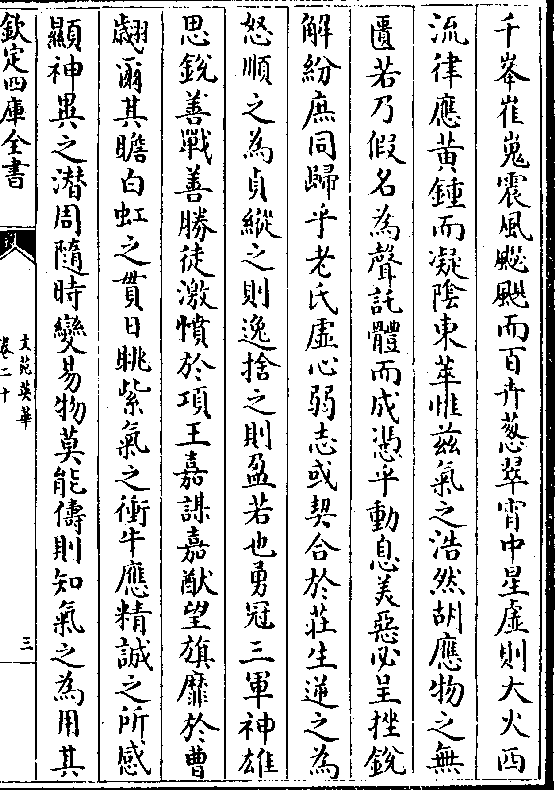 千峯崔嵬震風颼颼而百卉葱翠宵中星虛則大火西
流律應黄鍾而凝陰東萃惟兹氣之浩然胡應物之無
匱若乃假名為聲託體而成憑乎動息美惡必呈挫銳
解紛庶同歸乎老氏虛心弱志或契合於莊生逆之為
怒順之為貞縱之則逸捨之則盈若也勇冠三軍神雄
思銳善戰善勝徒激憤於項王嘉謀嘉猷望旗靡於曹
翽爾其瞻白虹之貫日眺紫氣之衝牛應精誠之所感
顯神異之潜周隨時變易物莫能儔則知氣之為用其
欽定四庫全書
文苑英華
卷二十
三